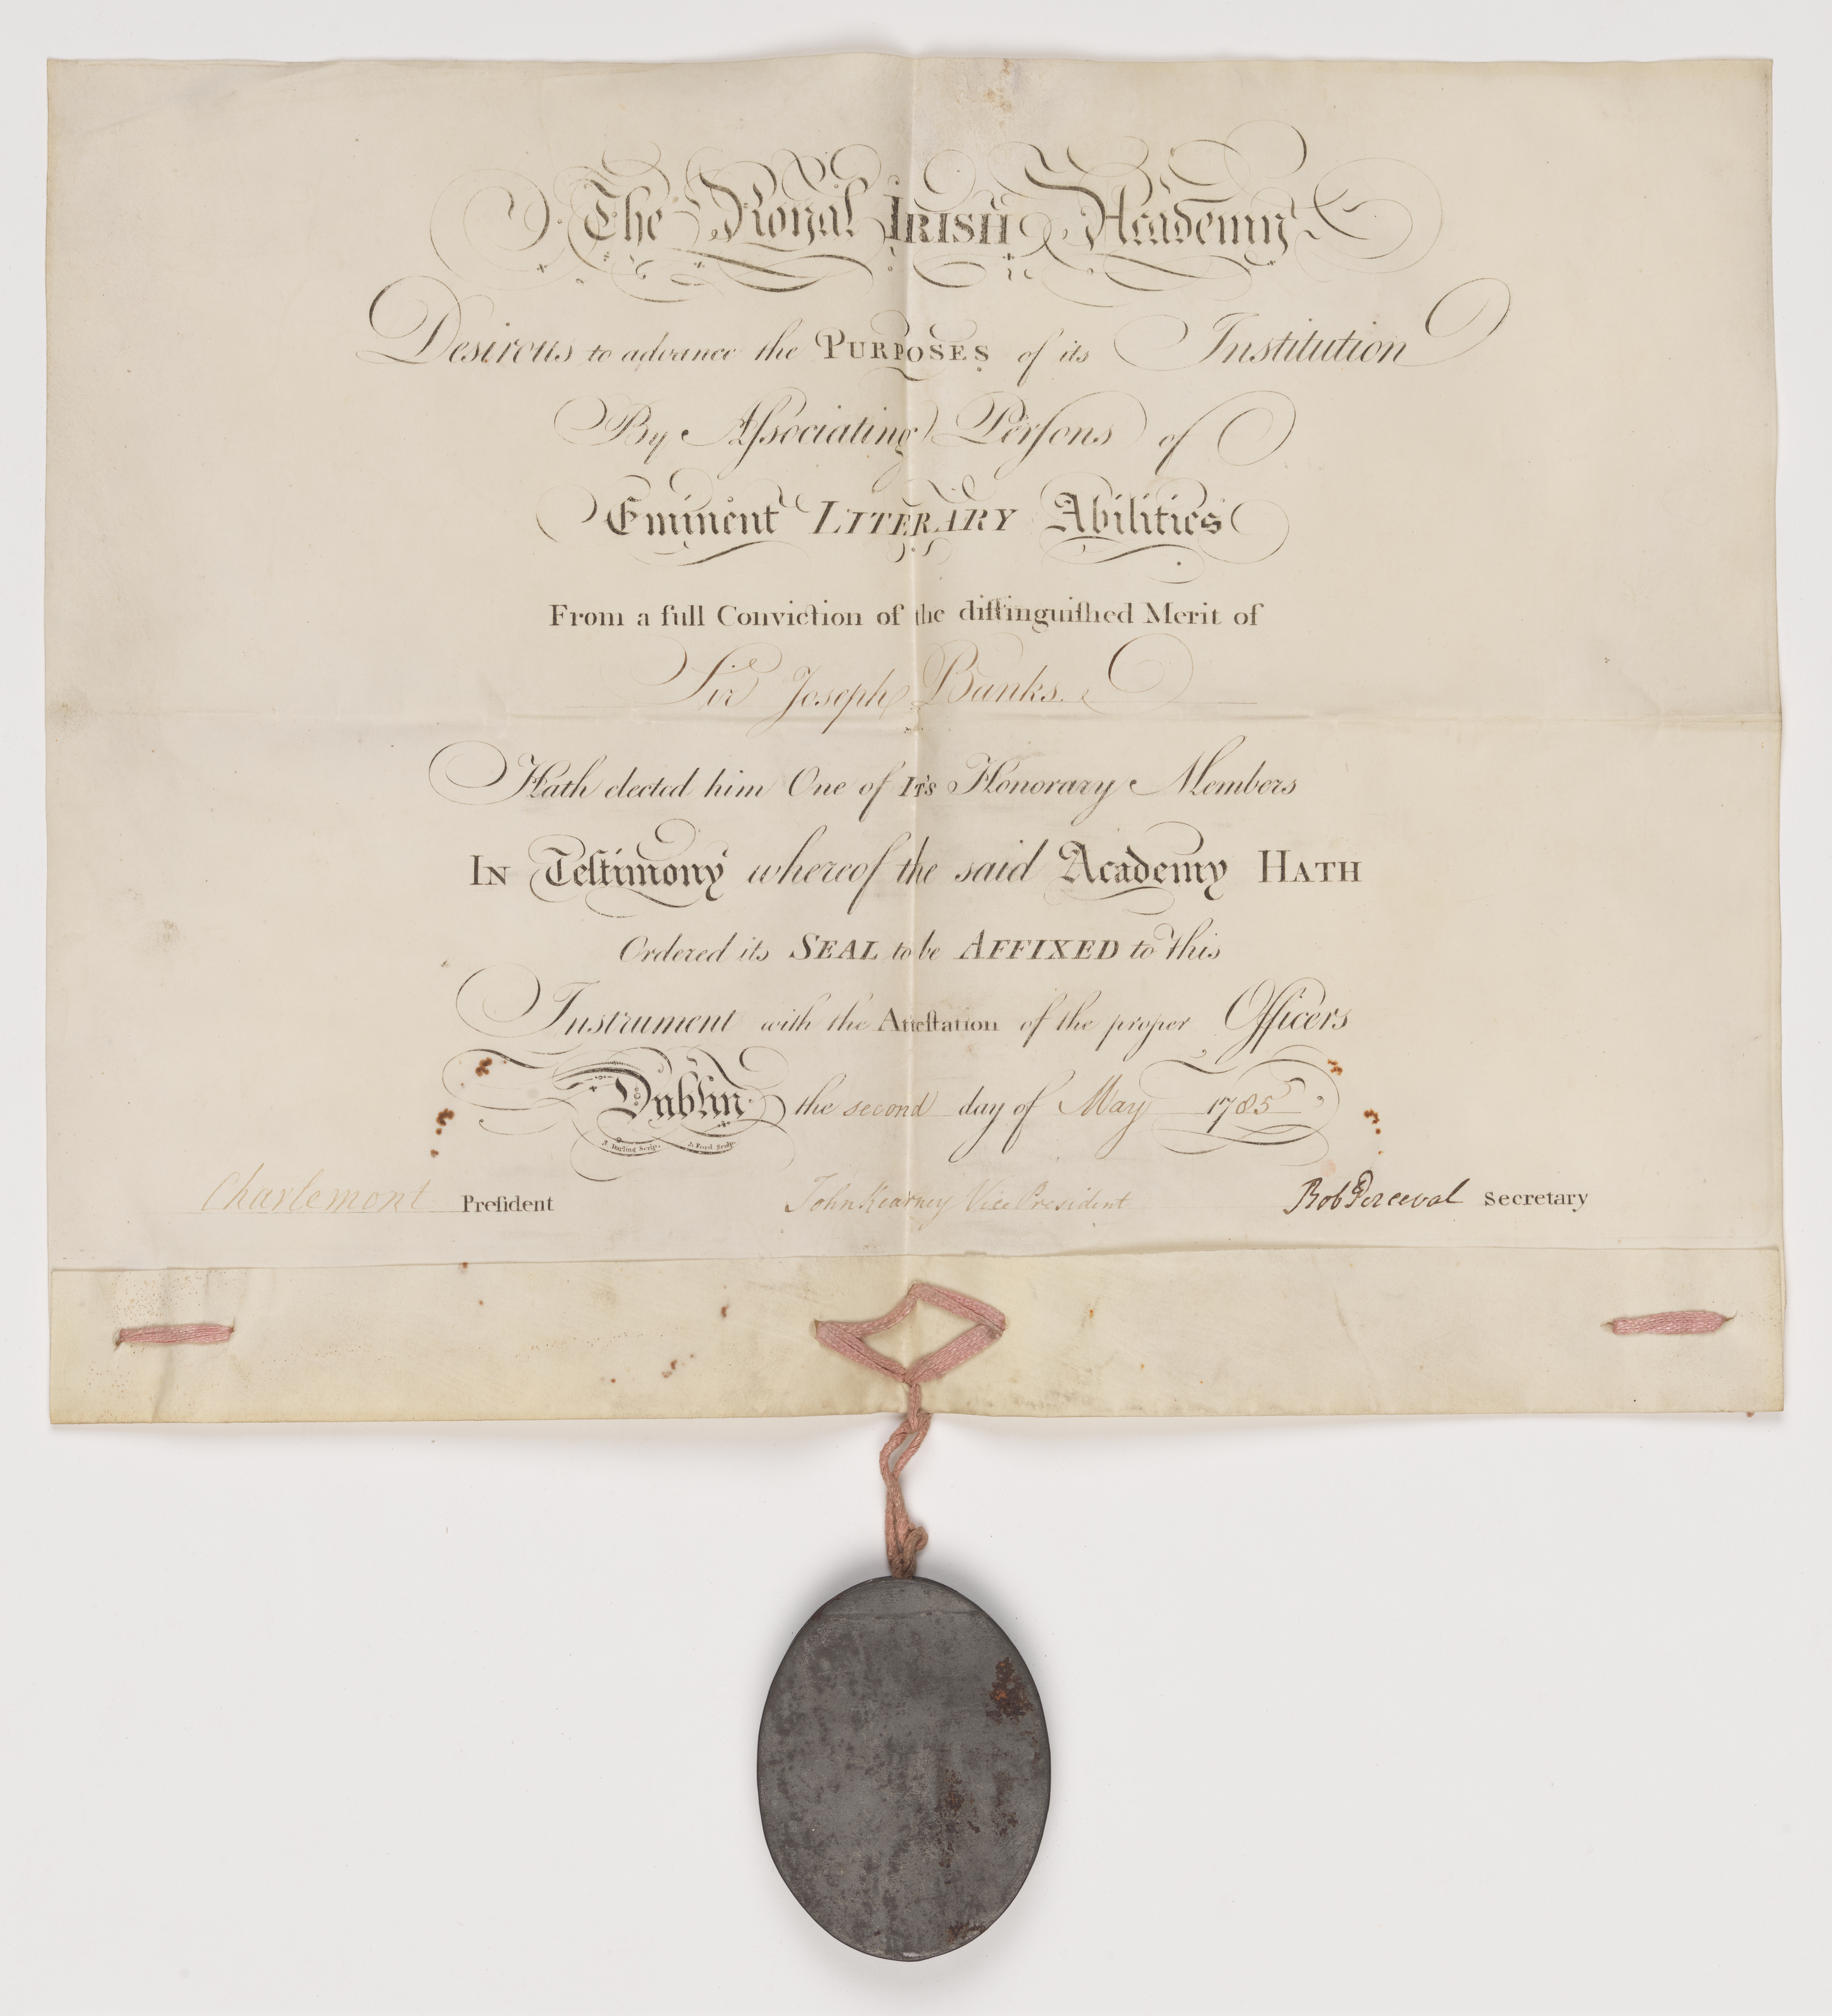 The Royal IRISH Academy
Desirous to advance the PURPOSES of its Institution
By Aſsociating Perſons of
Eminent LITERARY Abilities
From a full Conviction of the diſtinguiſhed Merit of
Sir Joseph Banks.
Hath elected him One of ITS Honorary Members
IN Teſtimony whereof the said Academy HATH
Ordered its SEAL to be AFFIXED to this
Instrument with the Atteſtation of the proper Officers
Dublin the second day of May 1785
J. Darling Scrip. J. Ford Sculp.
Charlemont Preſident John Kearney Vice President Rob Perceval Secretary